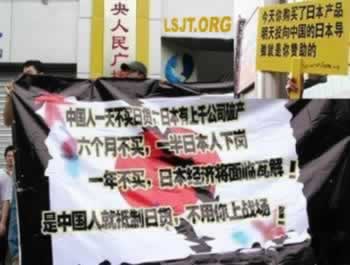 央人民广
LSJT.ORG
今天你购买了日本产品
明天投向中国的日本导
弹就是你赞助的
中国人一天不买日货,日本有上千公司破产
六个月不买,一半日本人下岗
一年不买,日本经济将面临瓦解!
是中国人就抵制日货,不用你上战场!